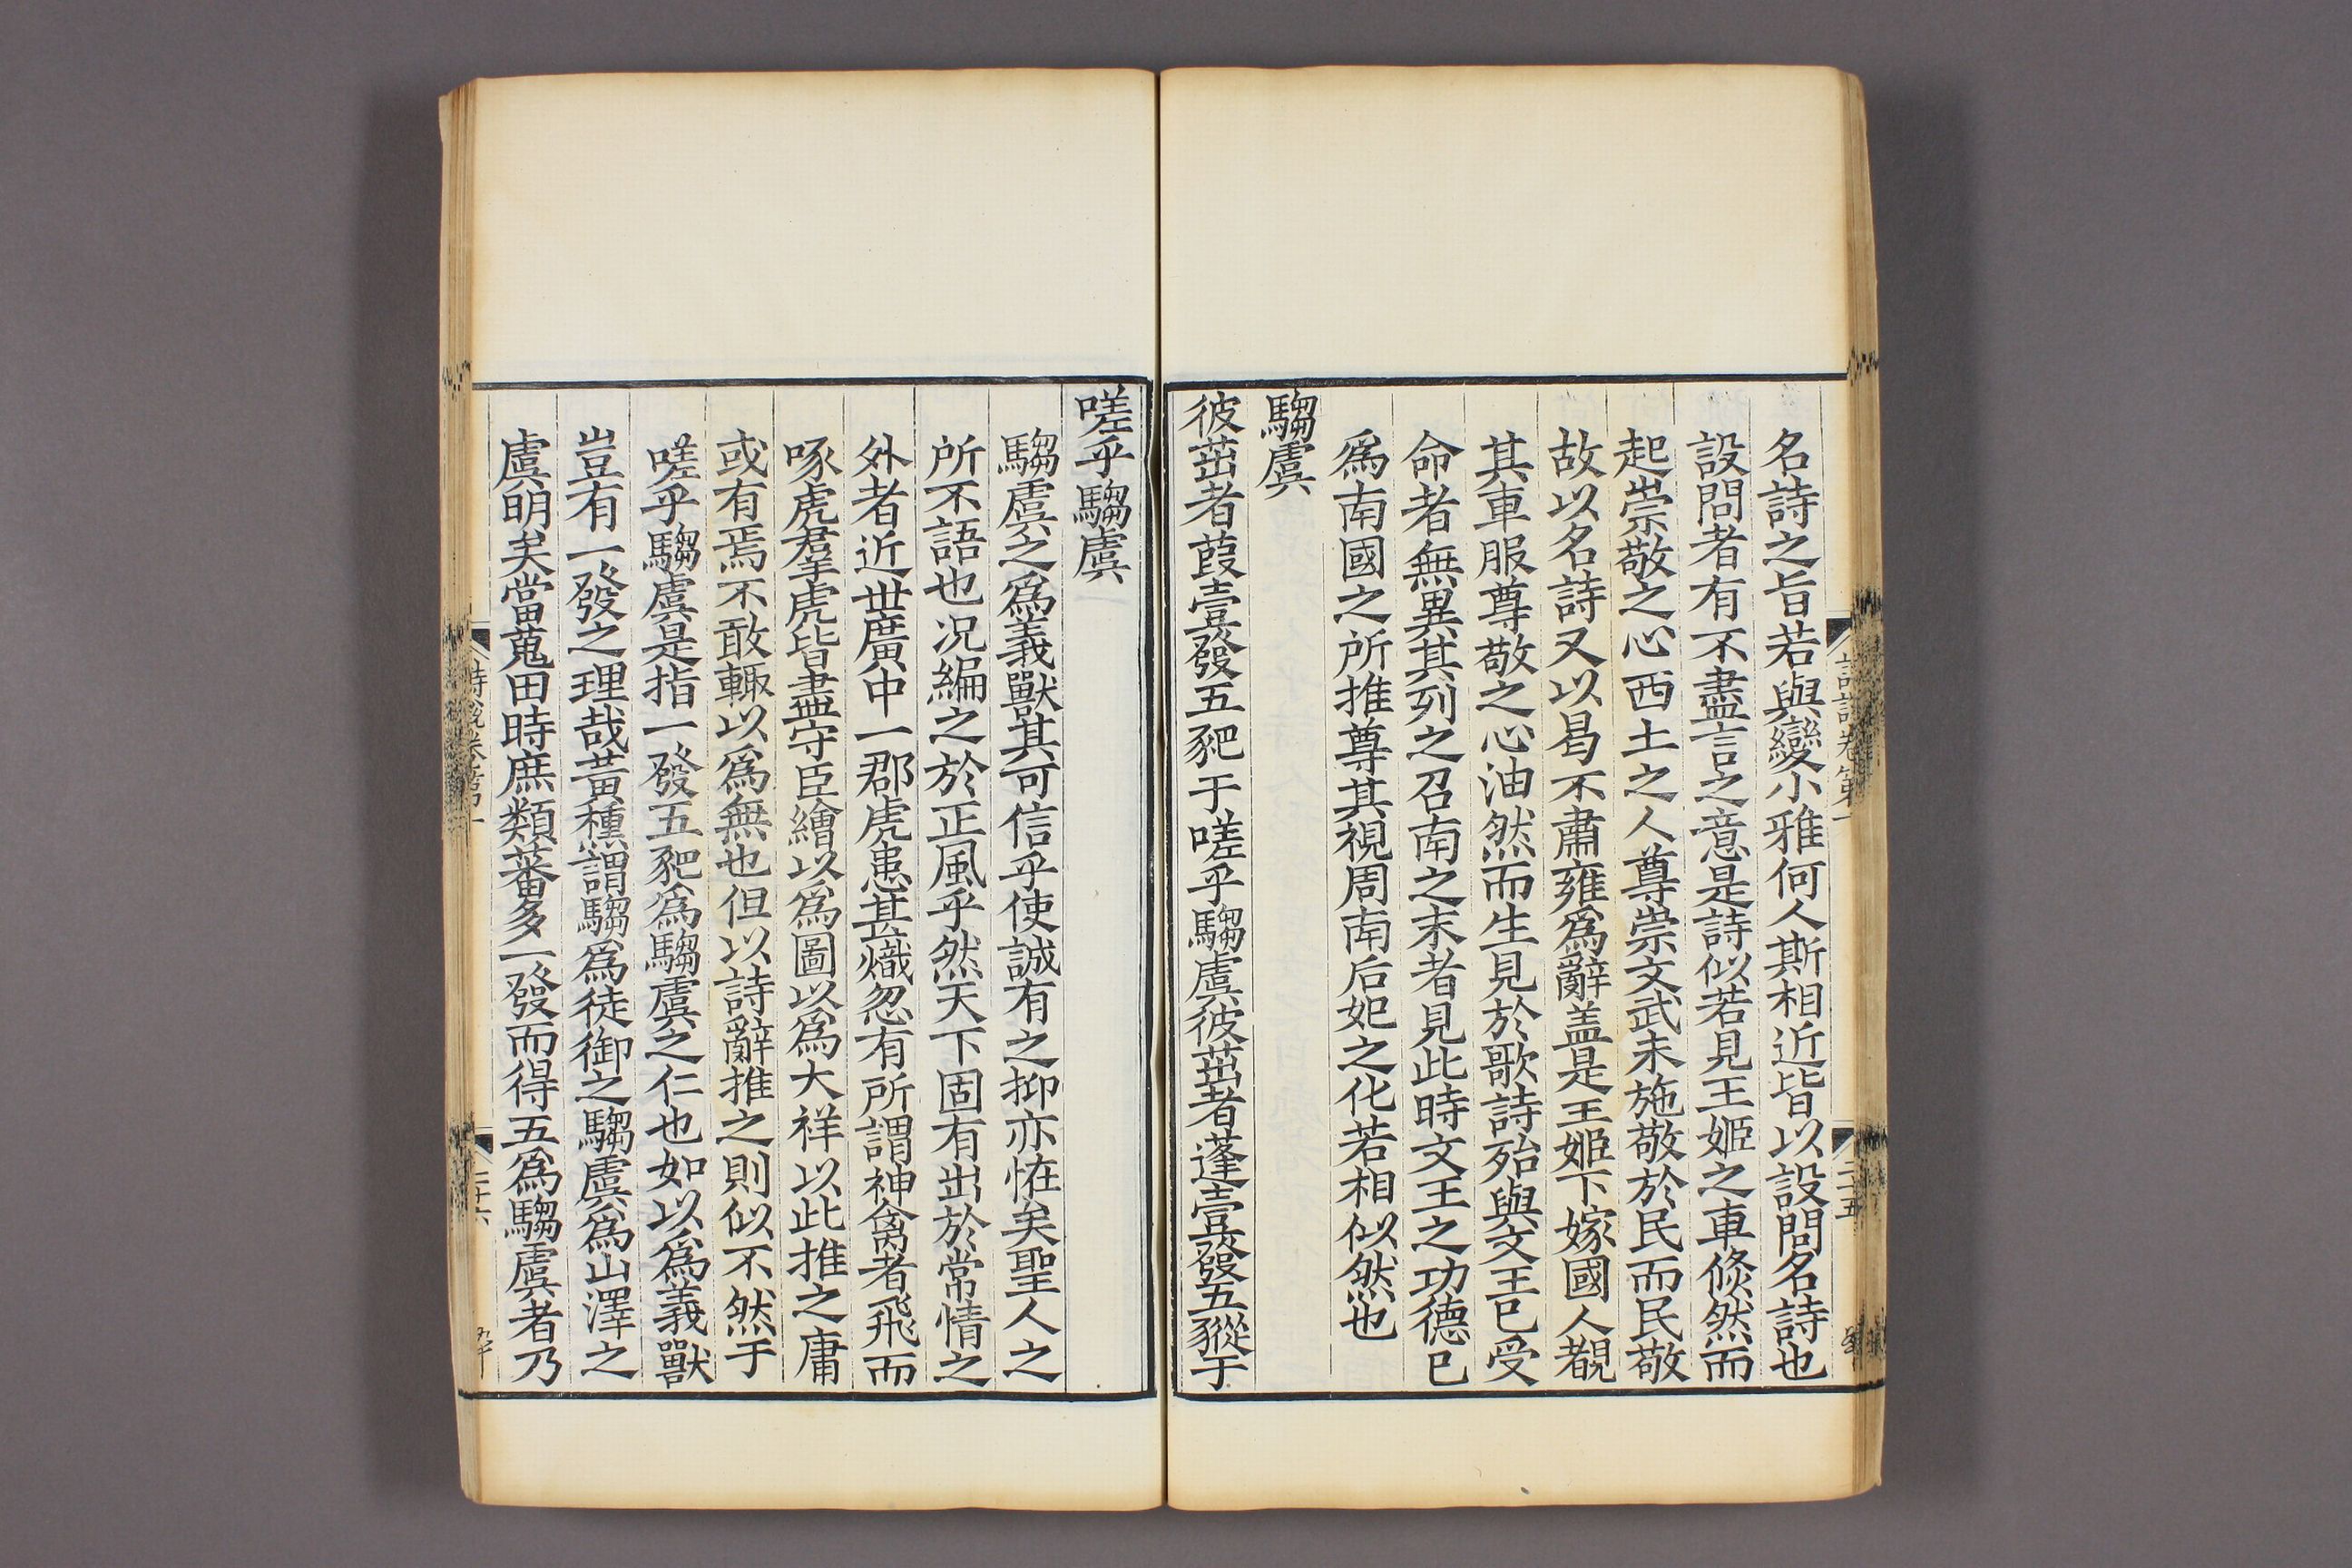 名詩之旨若與變小雅何人斯相近皆以設問名詩也
設問者有不盡言之意是詩似若見王姬之車倐然而
起崇敬之心西土之人尊崇文武未施敬於民而民敬
故以名詩又以曷不肅雍爲辭盖是王姬下嫁國人覩
其車服尊敬之心油然而生見於歌詩殆與文王已受
命者無異其列之召南之末者見此時文王之功德已
爲南國之所推尊其視周南后妃之化若相似然也
騶虞
彼茁者葭壹發五豝于嗟乎騶虞彼茁者蓬壹發五豵于
嗟乎騶虞
騶虞之爲義獸其可信乎使誠有之抑亦恠矣聖人之
所不語也况編之於正風乎然天下固有出於常情之
外者近世廣中一郡虎患甚熾忽有所謂神禽者飛而
啄虎羣虎皆盡守臣繪以爲圖以爲大祥以此推之庸
或有焉不敢輙以爲無也但以詩辭推之則似不然于
嗟乎騶虞是指一發五豝爲騶虞之仁也如以爲義獸
豈有一發之理哉黃種謂騶爲徒御之騶虞爲山澤之
虞明矣當蒐田時庶類蕃多一發而得五爲騶虞者乃
詩說卷第一
二十六
詩說卷第一
二十五